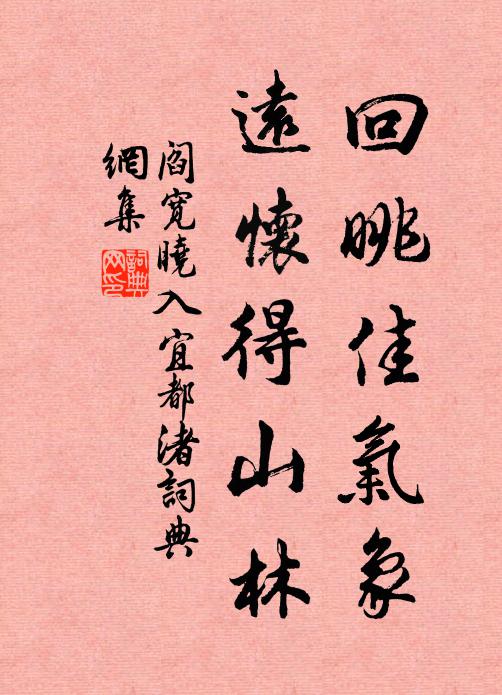 回眺佳氣象
遠懷得山林
閻寬曉入宜都渚詞典
網集
詞典
网印